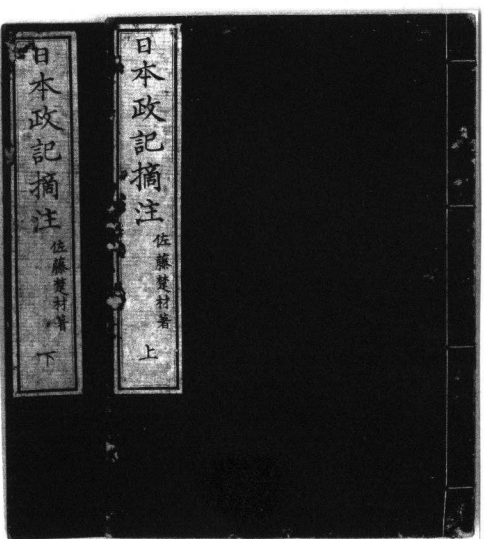 日本政記摘注
佐藤楚村著
上
日本政記摘注
佐藤楚村著
下